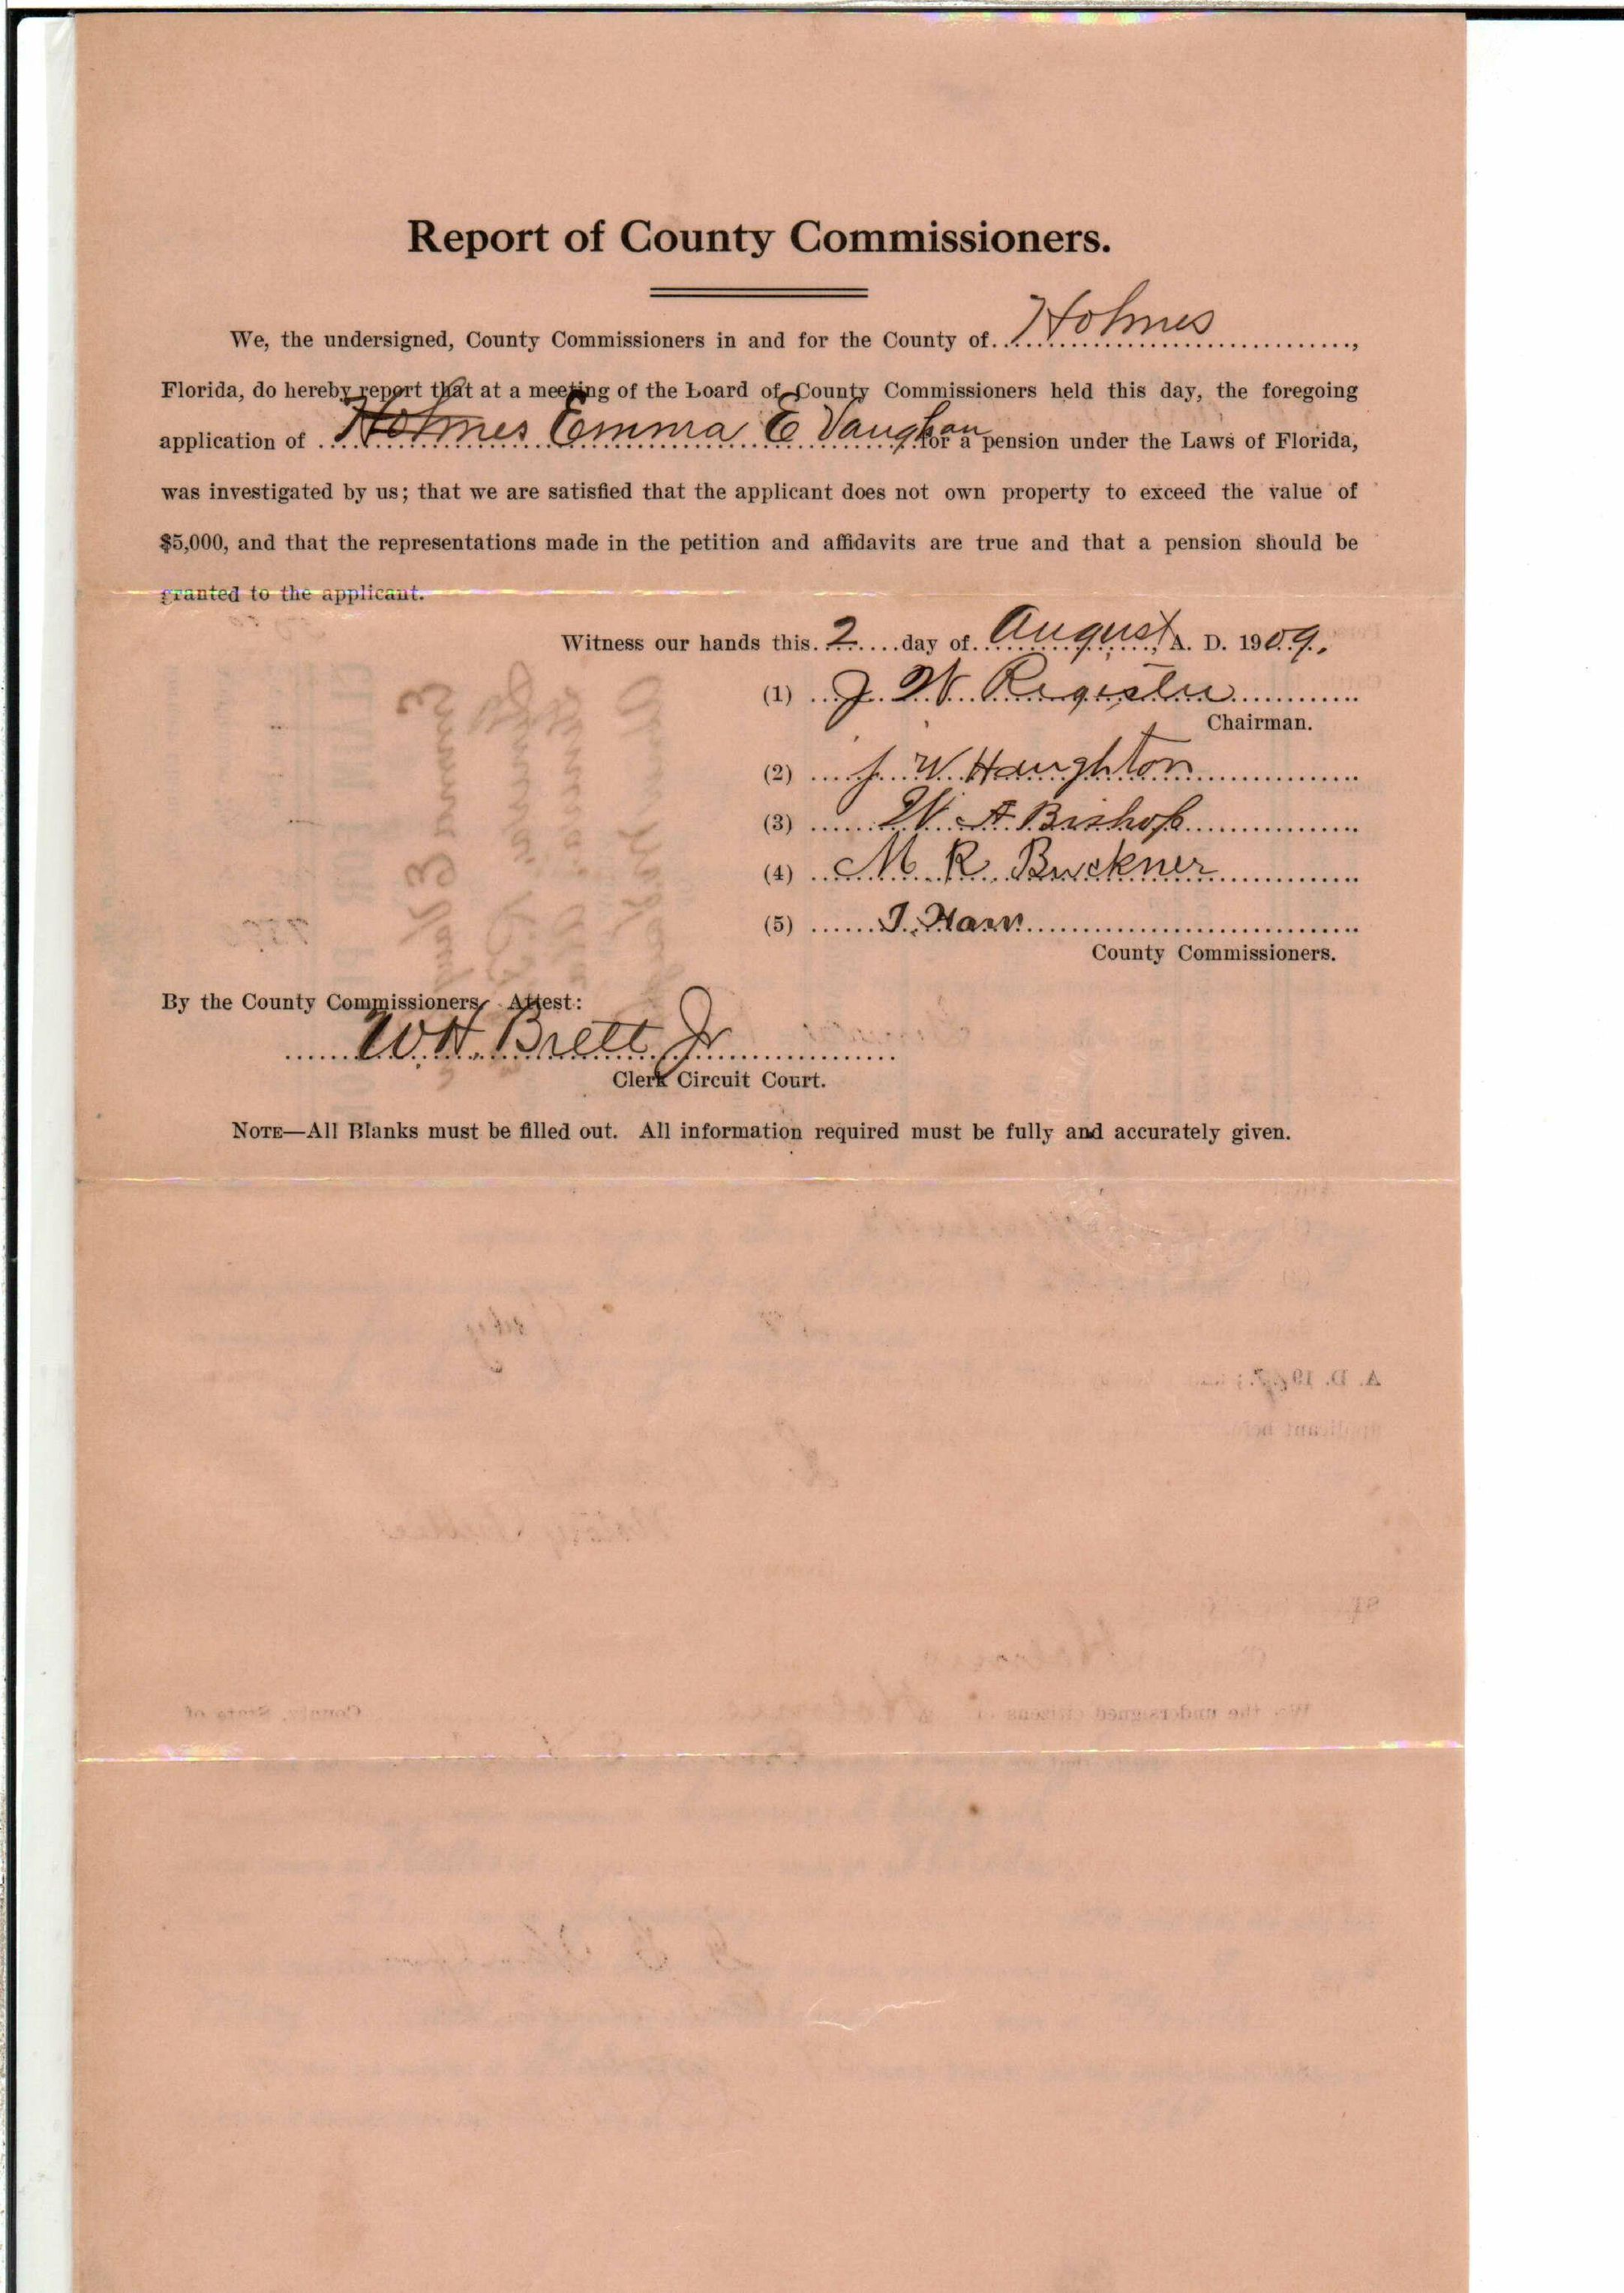 Report of County Commissioners.
We, the undersigned, County Commissioners in and for the County of Holmes,
Florida, do hereby report that at a meeting of the Loard of County Commissioners held this day, the foregoing
application of Holmes Emma E Vaughan for a pension under the Laws of Florida,
was investigated by us; that we are satisfied that the applicant does not own property to exceed the value of
$5,000, and that the representations made in the petition and affidavits are true and that a pension should be
granted to the applicant.
Witness our hands this 2 day of August, A. D. 1909.
(1) J. W. Register
Chairman.
(2) J. W. Haughton
(3) W. A. Bishop
(4) M. R. Buckner
(5) J. Ham
County Commissioners.
By the County Commissioners, Attest:
W. H. Brett Jr
Clerk Circuit Court.
NOTE—All Blanks must be filled out. All information required must be fully and accurately given.